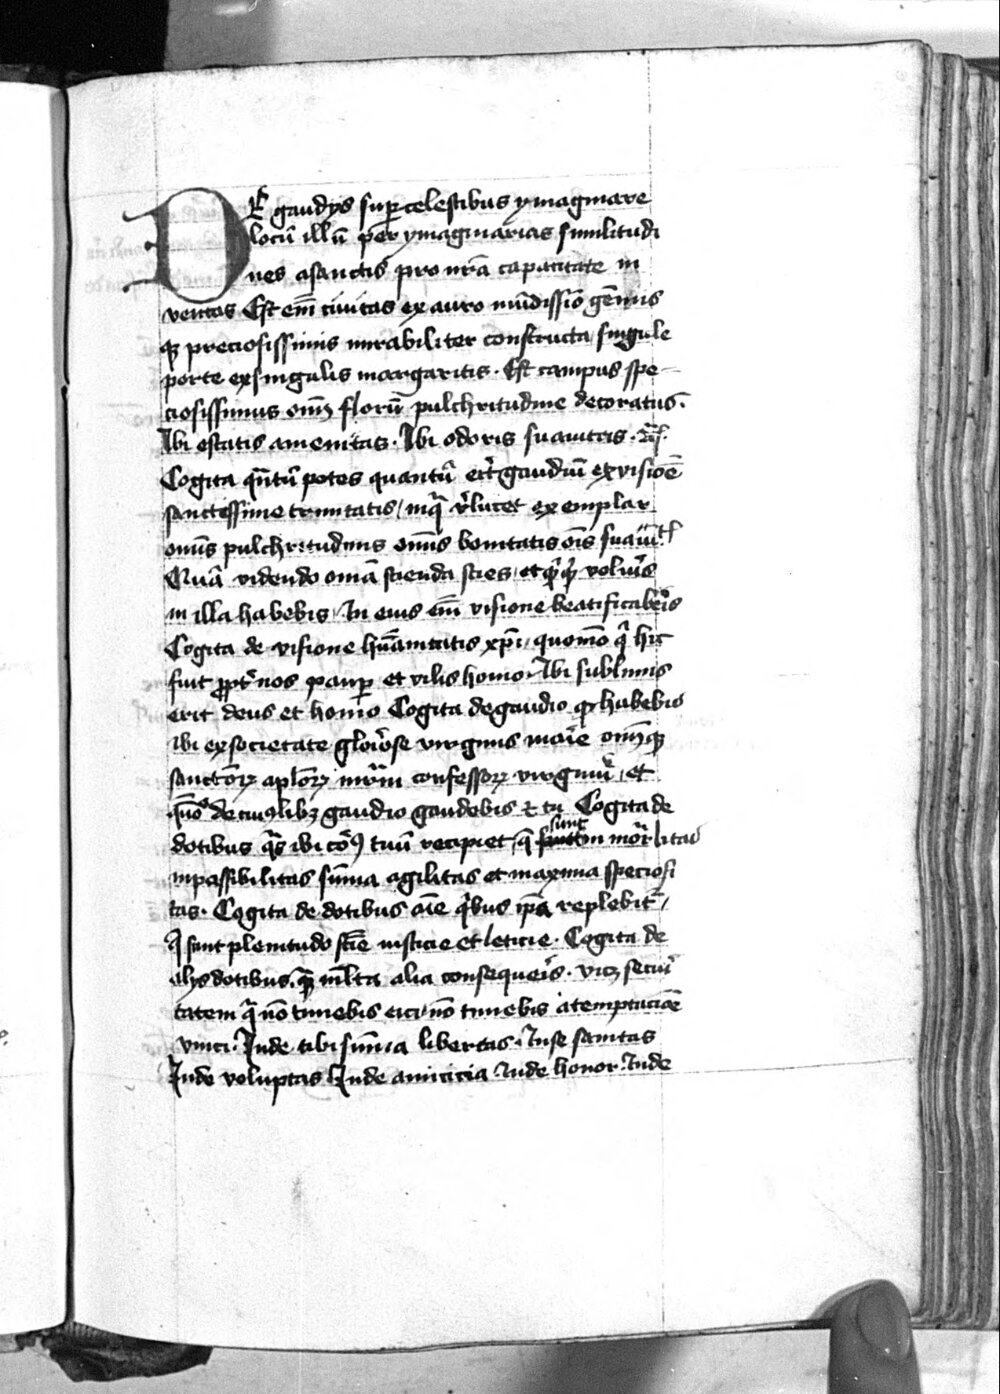 DE gaudys sup celestibus ymaginare
locū illū per ymaginarias similitudi
nes a sanctis pro nrā capacitate in
ventas Est eni͞m civitas ex auro mūdissīo gēmis
qꝫ preciosissimis mirabiliter constructa / singule
porte ex singulis margaritis · Est campus spe
ciosissimus oīm florū pulchritudine decoratus ·
Ibi estatis amenitas · Ibi odoris suavitas ·
Cogita qn̄tū potes quantū erit gaudiū ex visiōe
sanctissime trinitatis / in qua relucet exemplar
omīs pulchritudinis omīs bonitatis oīs suavit
Quā videndo omā scienda scies / et volueris
in illa habebis / In eius em̄ visione beatificaberis
Cogita de visione hūanitatis xp̄i / quomō qͥ hic
fuit ꝓpt nos paup et vilis homo · Ibi sublimis
erit deus et homo Cogita de gaudio qd habebis
ibi ex societate gloriose virginis marie oīmqꝫ
sanctorꝫ aplorꝫ mrm̄ confessorꝫ virginū / et
quō de cuiuslibꝫ gaudio gaudebis et tu Cogita de
dotibus qͣs ibi corp9 tuū recipiet / q̄ sunt in mōrlitas
inpassibilitas sūma agilitas et maxima speciosi
tas · Cogita de dotibus aīe qͥbus ip̄a replebit /
q̄ sunt plenitudo scīe iusticie et leticie · Cogita de
alys dotibus qꝫ ml̄ta alia consequeris · vicꝫ secui
tatem qͣ nō timebis eici / nō timebis a temptaciōe
vinci · Inde tibi sūma libertas · Inse sanitas
Inde voluptas Inde amicicia Inde honor · Inde